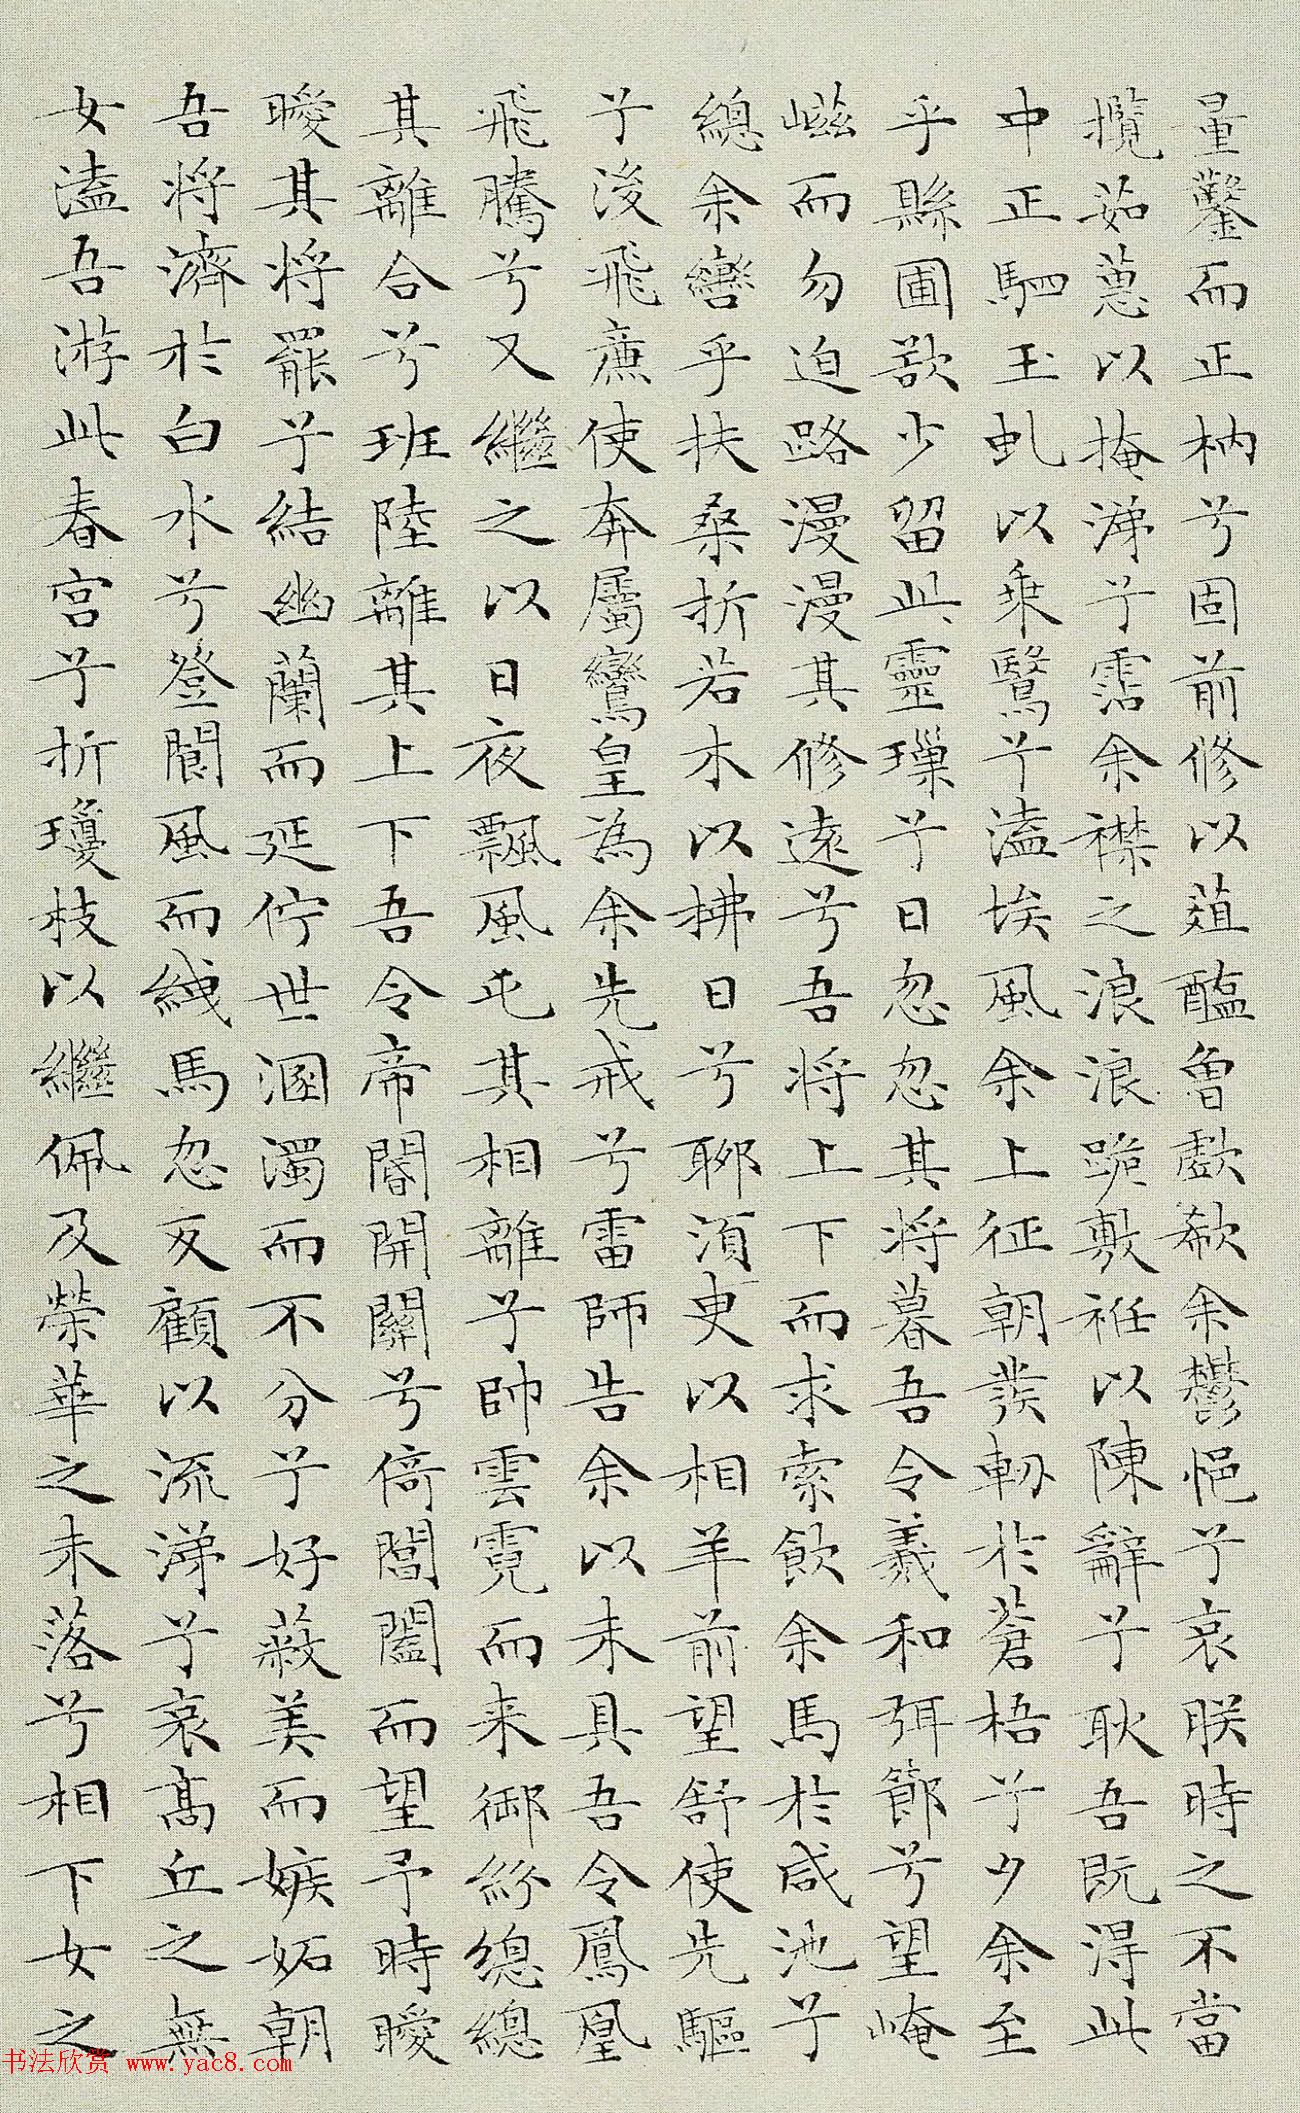 量鑿而正枘兮固前修以葅醢曾歔欷余鬱悒兮哀朕時之不當
攬茹蕙以掩涕兮霑余襟之浪浪跪敷衽以陳辭兮耿吾既得此
中正駟玉虬以乘鷖兮溘埃風余上征朝發軔於蒼梧兮夕余至
乎縣圃欲少留此靈璅兮日忽忽其将暮吾令羲和弭節兮望崦
嵫而勿迫路漫漫其修遠兮吾将上下而求索飲余馬於咸池兮
總余轡乎扶桑折若木以拂日兮聊須臾以相羊前望舒使先驅
兮後飛廉使奔屬鸞皇為余先戒兮雷師告余以未具吾令鳳凰
飛騰兮又繼之以日夜飄風屯其相離兮帥雲霓而来御紛總總
其離合兮班陸離其上下吾令帝閽開關兮倚閶闔而望予時曖
曖其将罷兮結幽蘭而延佇世溷濁而不分兮好蔽美而嫉妬朝
吾将濟於白水兮登閬風而緤馬忽反顧以流涕兮哀高丘之無
女溘吾游此春宫兮折瓊枝以繼佩及榮華之未落兮相下女之
书法欣赏 www.yac8.com